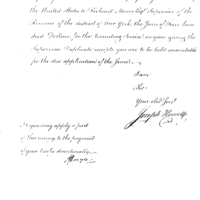 the United States to Richard Morris Esq Supervisor of the
Revenue of the district of New York the Sum of Four Hun
dred Dollars, for the recruiting Service on your giving the
Supervisor Duplicate receipts you are to be held accountable
for the due application of the Same
I am
Sir
Your obt Servt
Joseph Howell
you may apply a part
of this money to the payment
of your troops discretionally